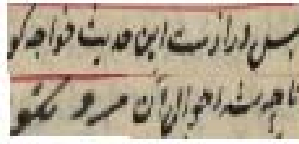 بس درازست این حدیث خواجه کو
تا چه شد احوال آن مرد نکو